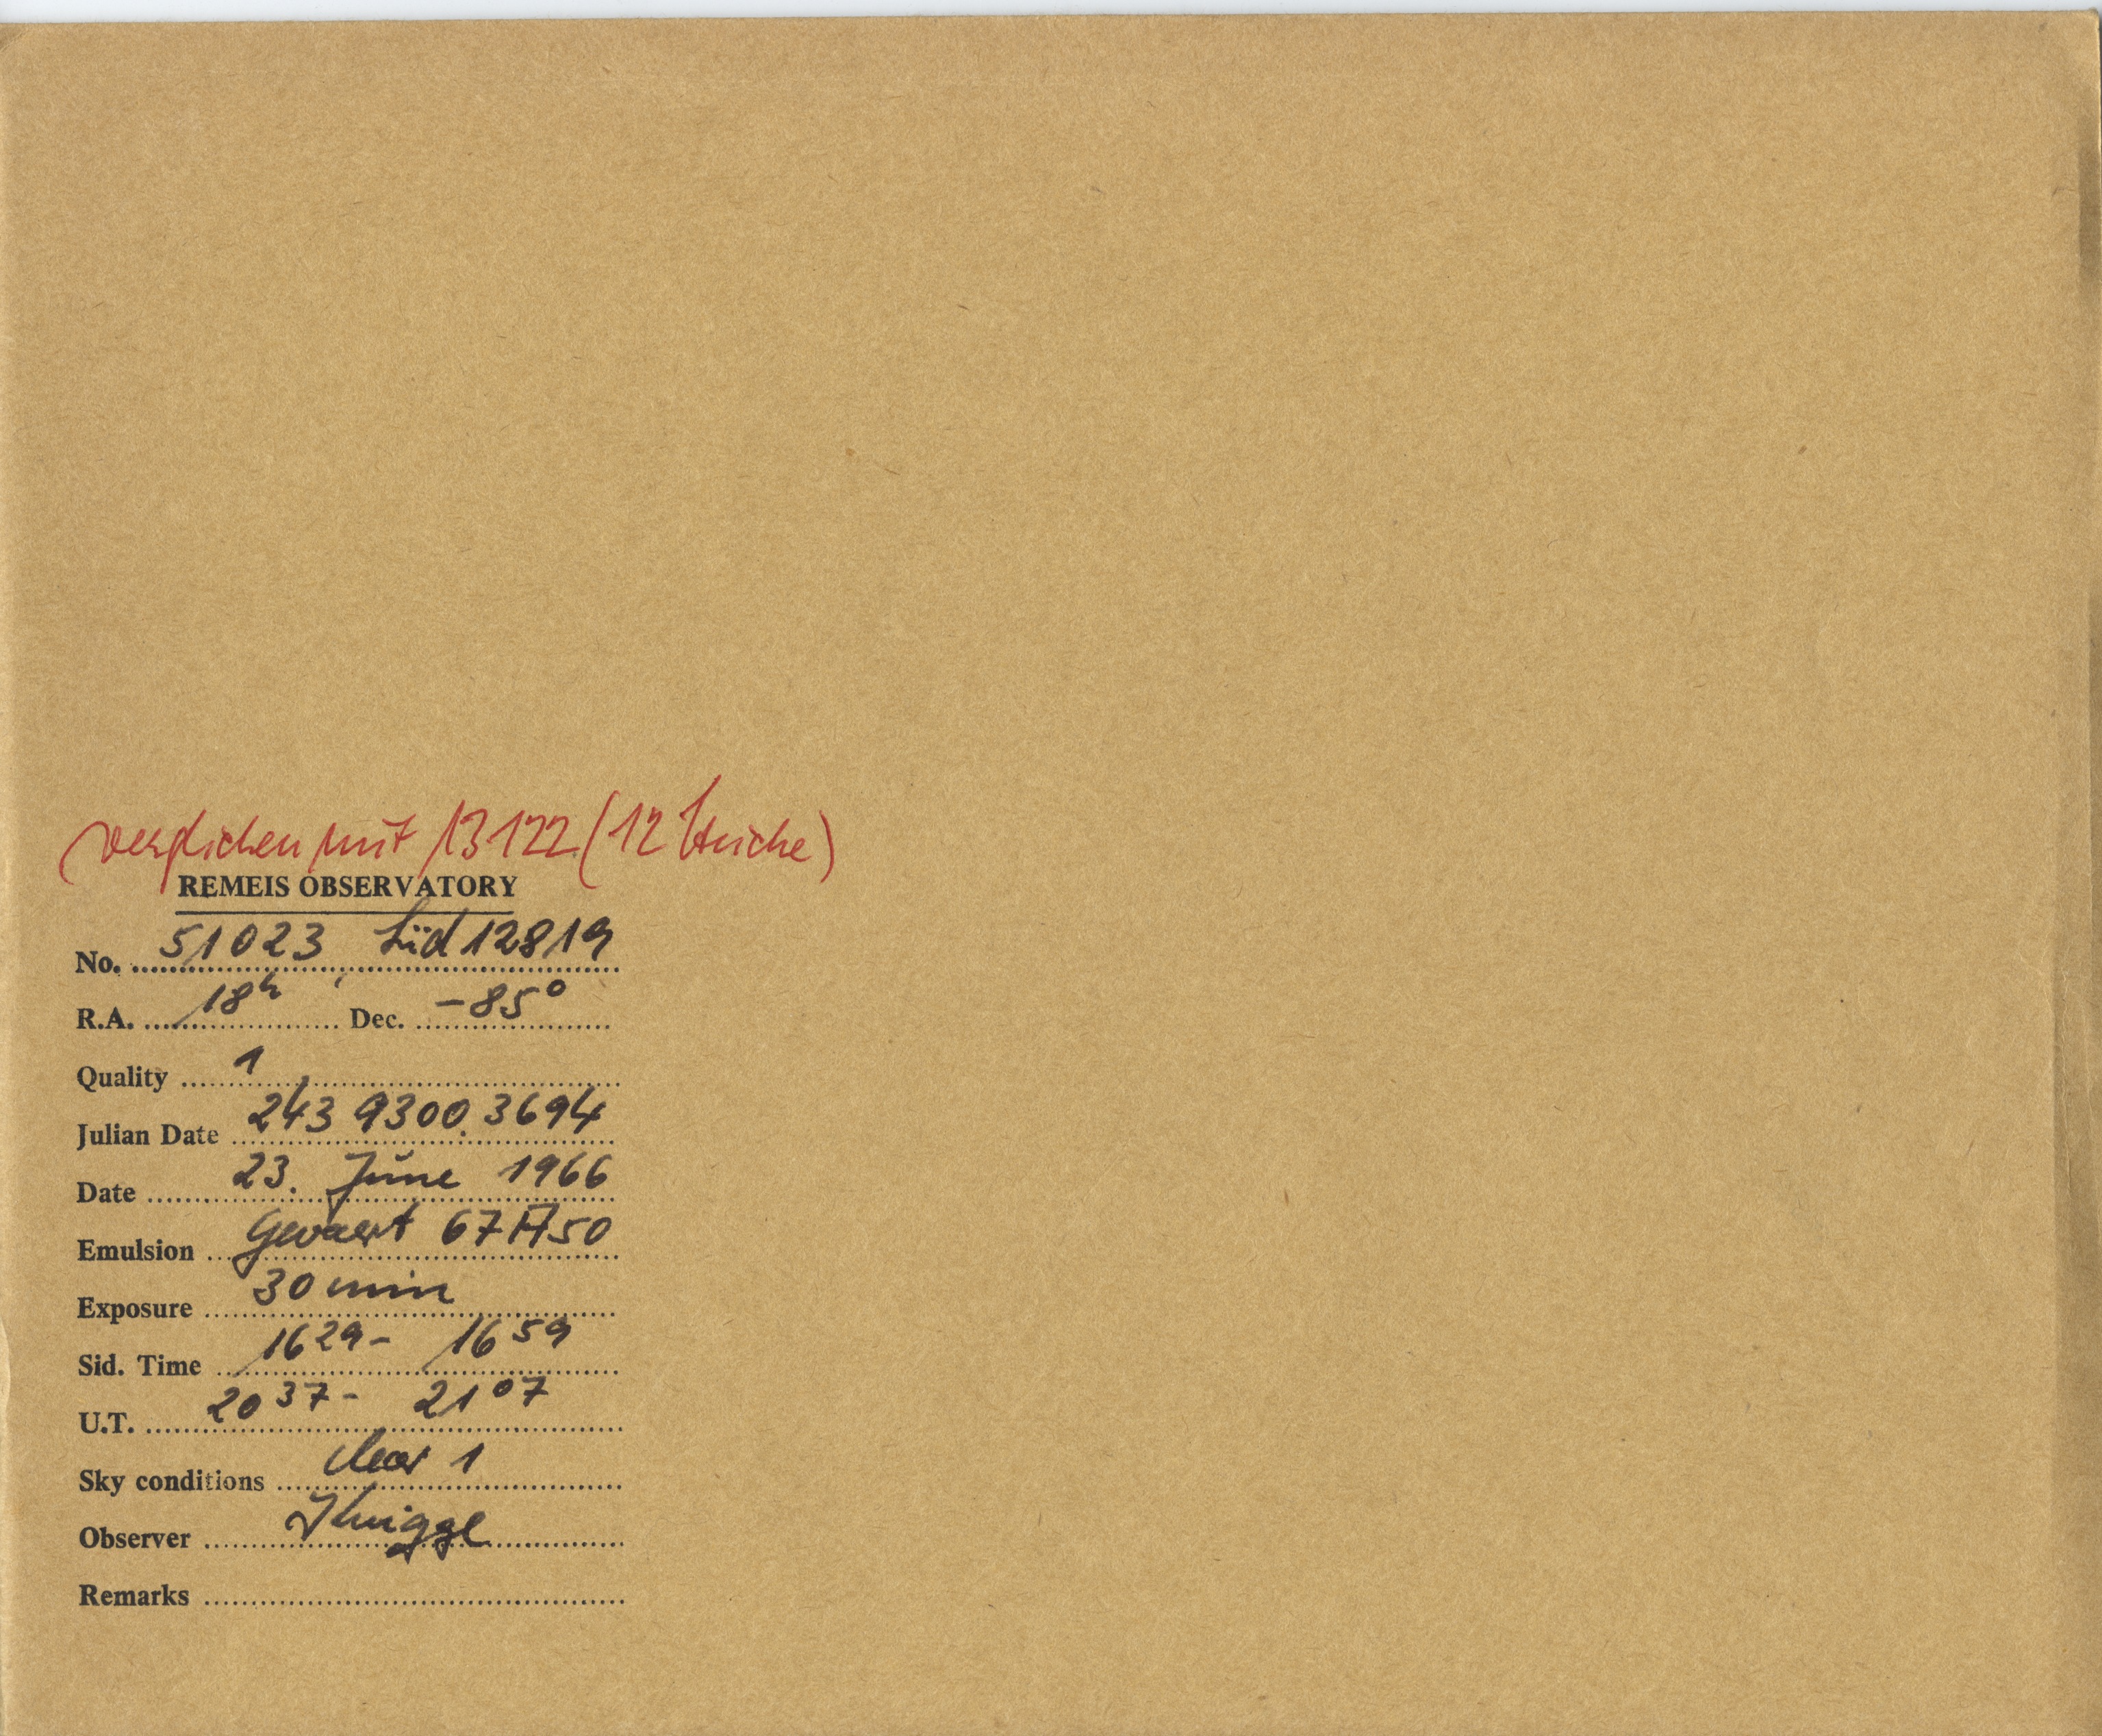 verglichen mit 13122 (12 Striche)
REMEIS OBSERVATORY
No. 51023 Süd 12819
R.A. 18h Dec. -85°
Quality 1
Julian Date 243 9300.3694
Date 23. June 1966
Emulsion Gevaert 67A50
Exposure 30 min
Sid. Time 16 29 - 16 59
U.T. 20 37 - 21 07
Sky conditions clear 1
Observer Knigge
Remarks